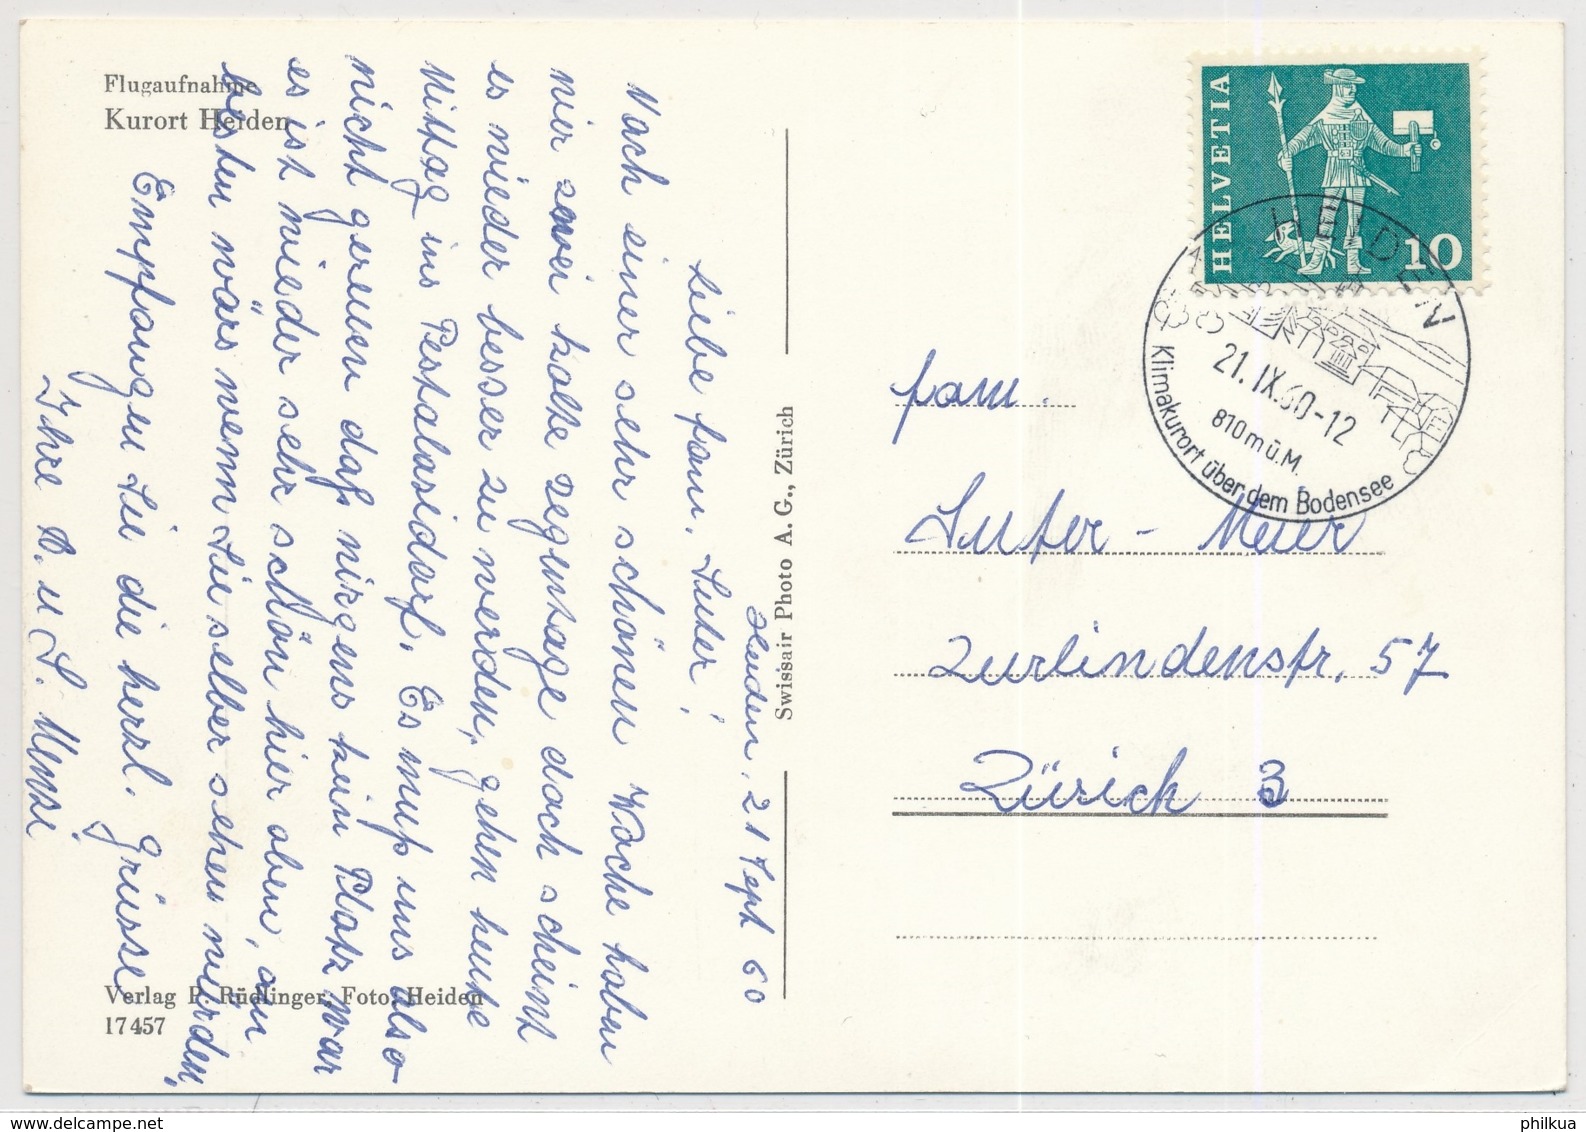 Flugaufnahme
Kurort Heiden
Heiden, 21 Sept 60
Liebe Fam. Suter!
Nach einer sehr schönen Woche haben
wir zwei kalte Regentage doch scheint
es wieder besser zu werden, gehen heute
Mittag ins Pestalozidorf. Es muss uns also
nicht gereuen daß nirgens kein Platz war
es ist wieder sehr schön hier oben, am
besten wärs wenn Sie selber sehen würden,
Empfangen Sie die herzl. Grüsse
Ihre B. u S. Menzi
Verlag P. Rüdlinger, Foto, Heiden
17457
Swissair Photo A. G., Zürich
HELVETIA
10
HEIDEN
21.IX.60-12
810 m ü. M.
Klimakurort über dem Bodensee
Fam.
Suter - Meier
Zurlindenstr. 57
Zürich 3
philkua